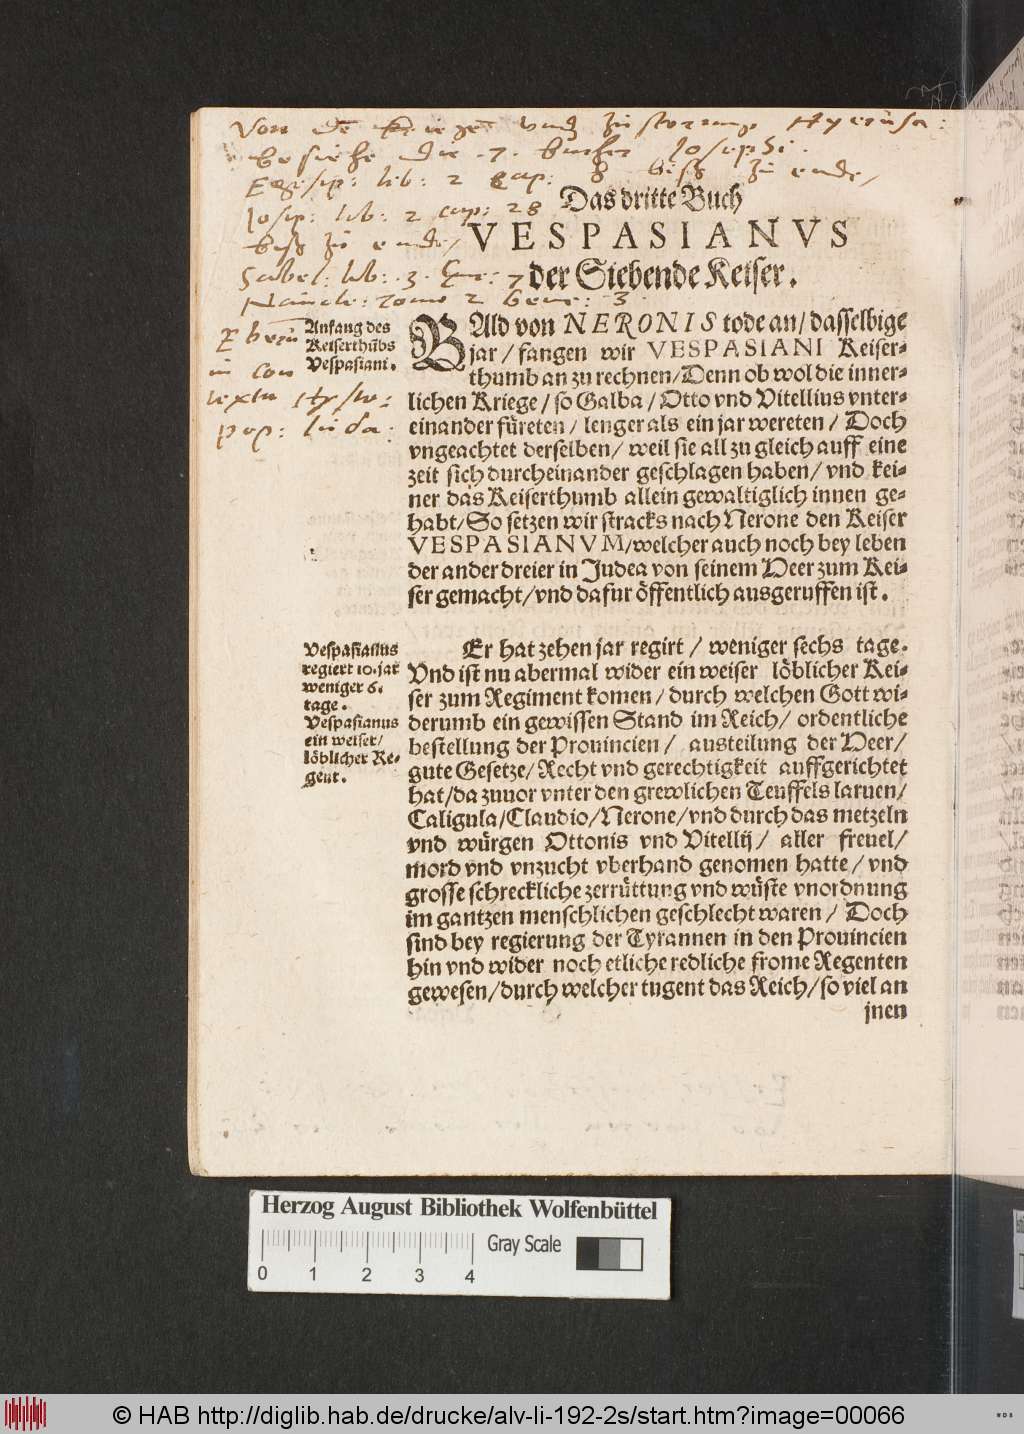 Von dē kriegē vnd zustorung Hyerusa:
besiehe die .7. bucher Josephi.
Egesip: lib: 2 cap: 8 biß zu ende/
Josip: lib: 2 cap: 28
biß zu ende/
Sabel: lib: 3. Ene: 7
Naucle: Tomo 2 Gene: 3
in con
textu Hysto:
pop: Iuda:
Das dritte Buch
VESPASIANVS
der Siebende Keiser.
Anfang des
Keiserthūbs
Vespasiani.
BAld von NERONIS tode an/ dasselbige
jar/ fangen wir VESPASIANI Keiser-
thumb an zu rechnen/ Denn ob wol die inner-
lichen Kriege/ so Galba/ Otto vnd Vitellius vnter-
einander füreten/ lenger als ein jar wereten/ Doch
vngeachtet derselben/ weil sie all zu gleich auff eine
zeit sich durcheinander geschlagen haben/ vnd kei-
ner das Keiserthumb allein gewaltiglich innen ge-
habt/ So setzen wir stracks nach Nerone den Keiser
VESPASIANVM/ welcher auch noch bey leben
der ander dreier in Judea von seinem Heer zum Kei-
ser gemacht/ vnd dafur öffentlich ausgeruffen ist.
Vespasianus
regiert 10. jar
weniger 6.
tage.
Vespasianus
ein weiser/
löblicher Re-
gent.
Er hat zehen jar regirt/ weniger sechs tage.
Vnd ist nu abermal wider ein weiser löblicher Kei-
ser zum Regiment komen/ durch welchen Gott wi-
derumb ein gewissen Stand im Reich/ ordentliche
bestellung der Prouincien/ austeilung der Heer/
gute Gesetze/ Recht vnd gerechtigkeit auffgerichtet
hat/ da zuuor vnter den grewlichen Teuffels laruen/
Caligula/ Claudio/ Nerone/ vnd durch das metzeln
vnd würgen Ottonis vnd Vitellij/ aller freuel/
mord vnd vnzucht vberhand genomen hatte/ vnd
grosse schreckliche zerrüttung vnd wüste vnordnung
im gantzen menschlichen geschlecht waren/ Doch
sind bey regierung der Tyrannen in den Prouincien
hin vnd wider noch etliche redliche frome Regenten
gewesen/ durch welcher tugent das Reich/ so viel an
jnen
Herzog August Bibliothek Wolfenbüttel
Gray Scale
0 1 2 3 4
© HAB http://diglib.hab.de/drucke/alv-li-192-2s/start.htm?image=00066